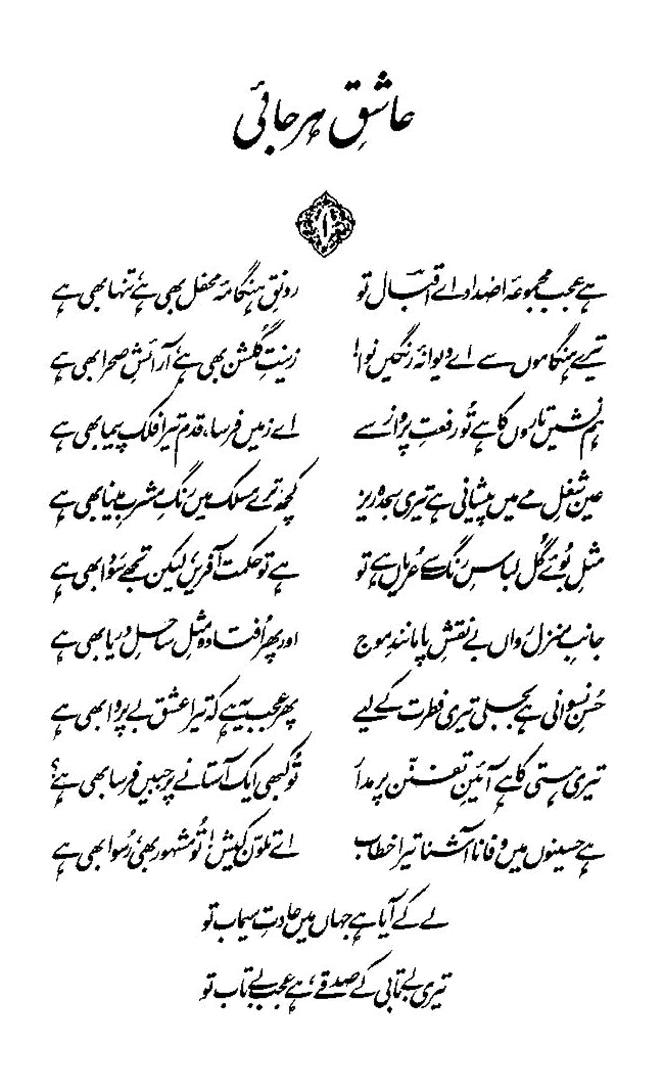 عاشقِ ہرجائی
۱
ہے عجب مجموعۂ اضداد اے اقبالؔ تو رونقِ ہنگامۂ محفل بھی ہے، تنہا بھی ہے
تیرے ہنگاموں سے اے دیوانۂ رنگیں نوا! زینتِ گلشن بھی ہے، آرائشِ صحرا بھی ہے
ہم نشیں تاروں کا ہے تُو رفعتِ پرواز سے اے زمیں فرسا، قدم تیرا فلک پیما بھی ہے
عین شغلِ مے میں پیشانی ہے تیری سجدہ ریز کچھ ترے مسلک میں رنگِ مشربِ مینا بھی ہے
مثلِ بُوئے گُل لباسِ رنگ سے عُریاں ہے تو ہے تو حکمت آفریں لیکن تجھے سودا بھی ہے
جانبِ منزل رواں بے نقشِ پا مانندِ موج اور پھر اُفتادہ مثلِ ساحلِ دریا بھی ہے
حُسنِ نسوانی ہے بجلی تیری فطرت کے لیے پھر عجب یہ ہے کہ تیرا عشق بے پروا بھی ہے
تیری ہستی کا ہے آئینِ تفنّن پر مدار تُو کبھی ایک آستانے پر جبیں فرسا بھی ہے؟
ہے حسینوں میں وفا ناآشنا تیرا خطاب اے تلوّن کیش! تُو مشہور بھی، رُسوا بھی ہے
لے کے آیا ہے جہاں میں عادتِ سیماب تو
تیری بے تابی کے صدقے، ہے عجب بے تاب تو